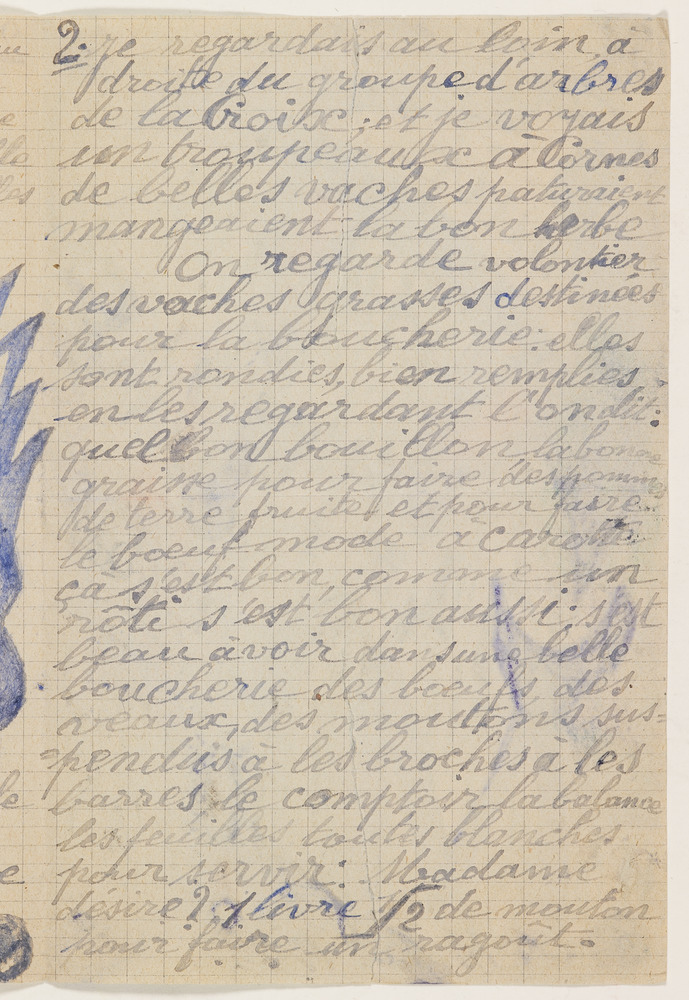 2. Je regardais au loin, à
droite du groupe d'arbres
de la Croix; et je voyais
un troupeaux à Cornes
de belles vaches paturaient
mangeaient la bon herbe
On regarde volontier
des vaches grasses destinées
pour la boucherie: elles
sont rondies, bien remplies,
en les regardant l'on dit:
quel bon bouillon, la bonne
graisse pour faire des pommes
de terre fruite et pour faire
le boeuf mode à carotte
çà s'est bon, comme un
rôti s'est bon aussi: s'est
beau à voir dans une belle
boucherie des boeufs des
veaux, des moutons sus=
=pendus à les broches à les
barres le comptoir la balance
les feuilles toutes blanches
pour servir: Madame
désire? 1 livre 1/2 de mouton
pour faire un ragoût.